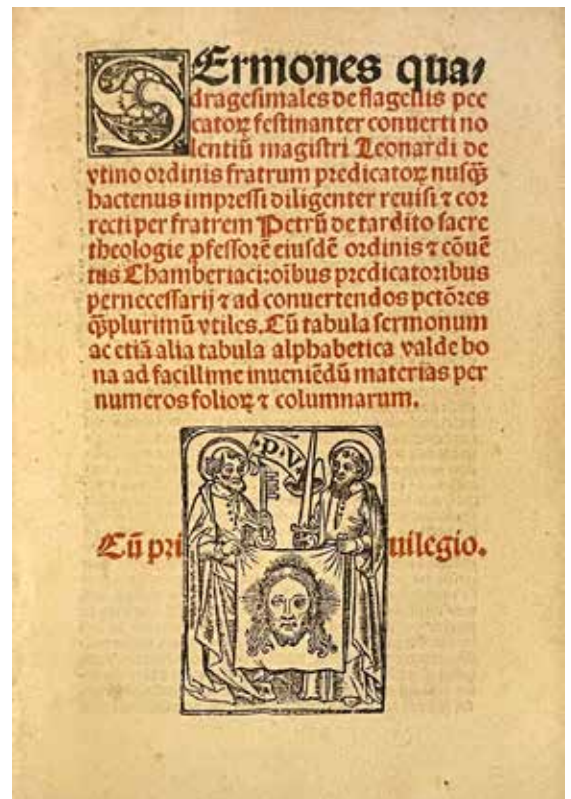 SErmones qua/
dragesimales de flagellis pec
catoꝝ festinanter conuerti no
lentiū magistri Leonardi de
vtino ordinis fratrum predicatoꝝ nusqꝫ̄
hactenus impressi diligenter reuisi ⁊ cor
recti per fratrem Petrū de tardito sacre
theologie ꝓfessorē eiusdē ordinis ⁊ cōuē
tus Chamberiaci: oībus predicatoribus
pernecessarij ⁊ ad conuertendos pctōres
qꝫ̄plurimū vtiles. Cū tabula sermonum
ac etiā alia tabula alphabetica valde bo
na ad facillime inueniēdū materias per
numeros folioꝝ ⁊ columnarum.
·P·V·
Cū pri uilegio.